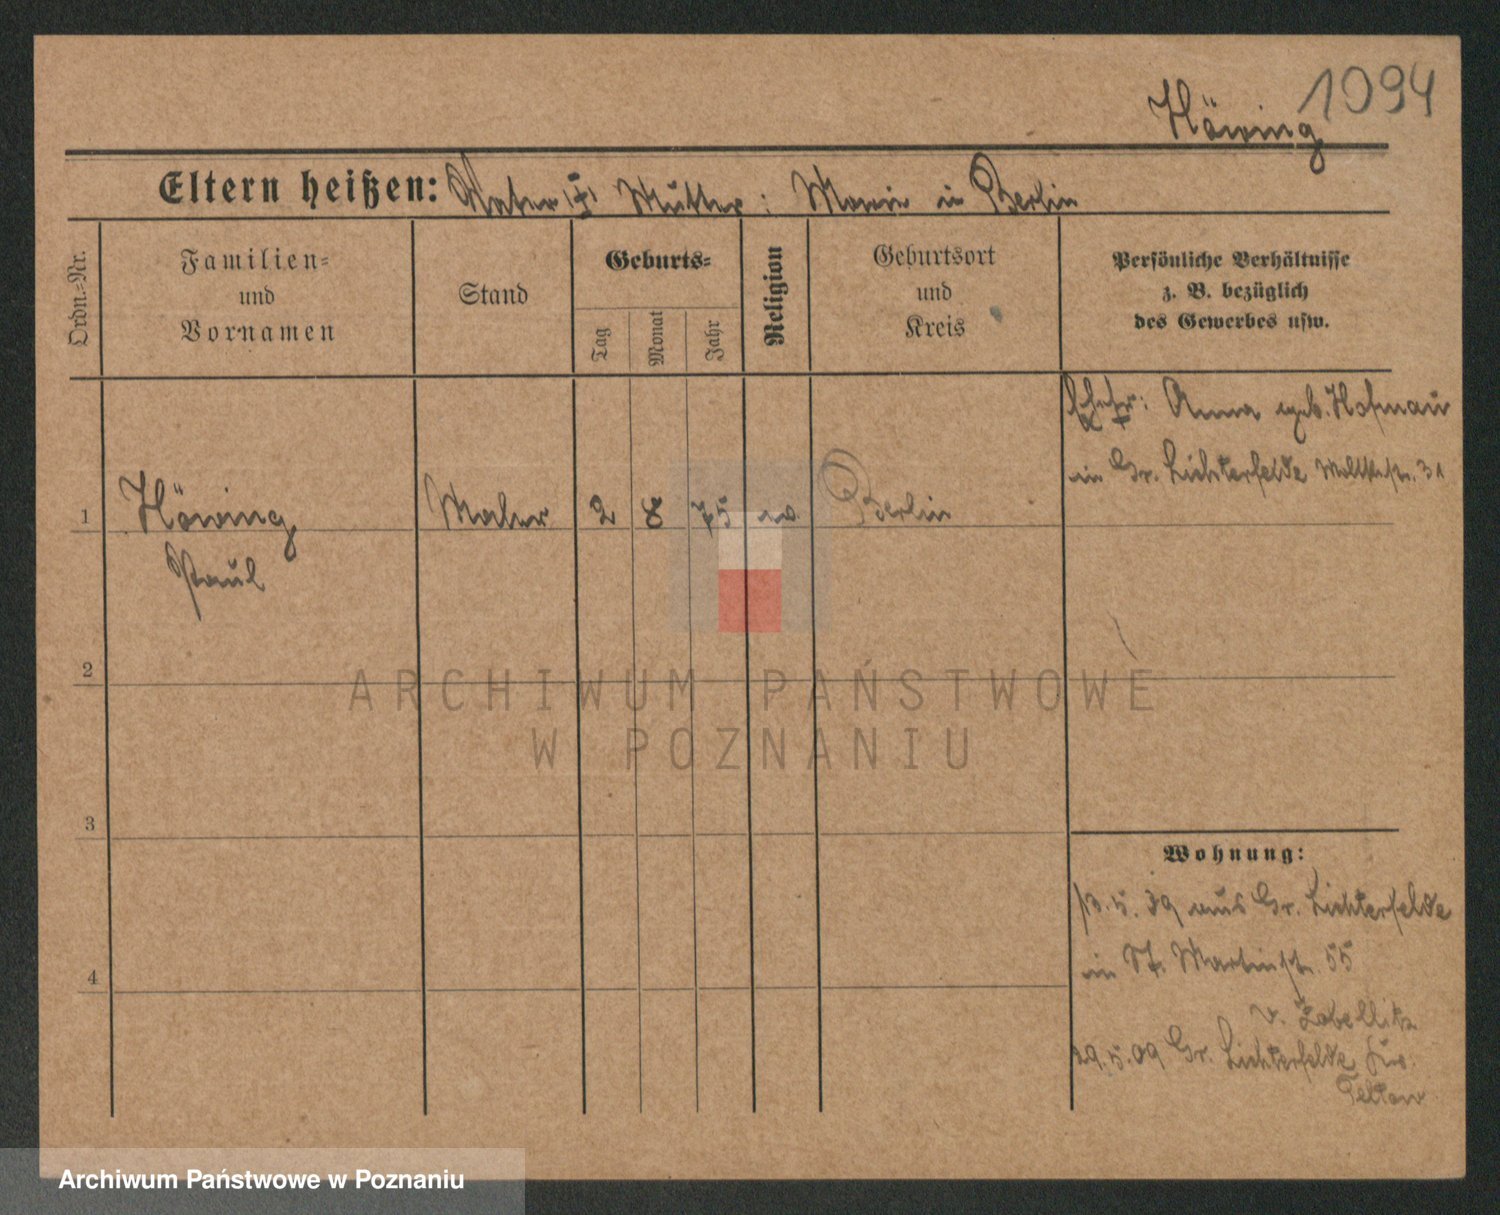 1094
Höwing
Eltern heißen: Vater † Mutter: Marie in Berlin
Ordn.-Nr.
Familien-
und
Vornamen
Stand
Geburts-
Tag
Monat
Jahr
Religion
Geburtsort
und
Kreis
Persönliche Verhältnisse
z. B. bezüglich
des Gewerbes usw.
Ehefr: Anna geb.
in Gr. Lichterfelde Moltkestr. 31
1
Höwing
Paul
Maler
2
8
75
ev
Berlin
2
3
4
Wohnung:
13.5.09 aus Gr. Lichterfelde
in St. Martinstr. 55
v.
29.5.09 Gr. Lichterfelde
Teltow
ARCHIWUM PAŃSTWOWE
W POZNANIU
Archiwum Państwowe w Poznaniu